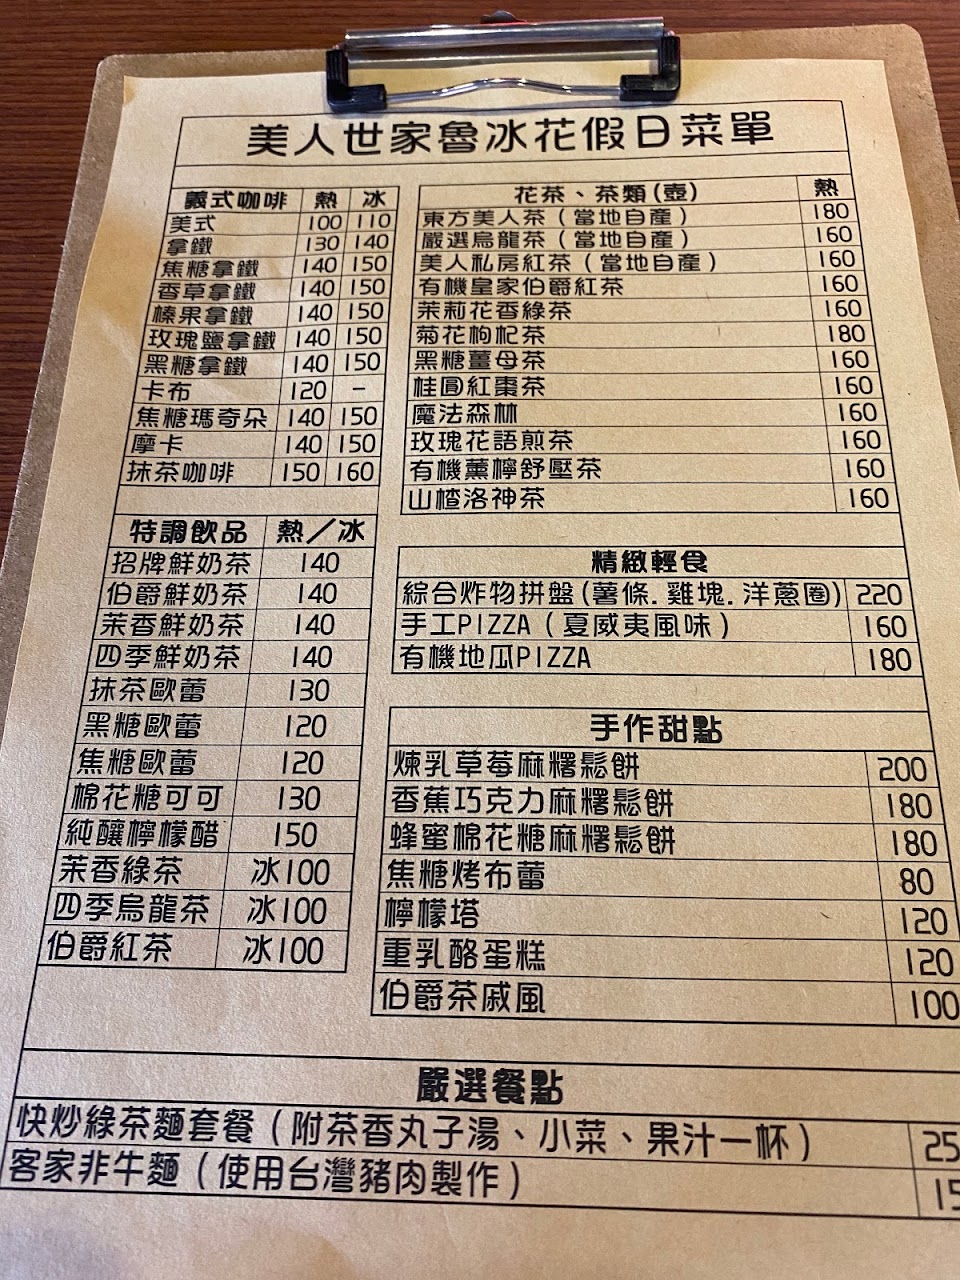 美人世家魯冰花假日菜單
義式咖啡 熱 冰
美式 100 110
拿鐵 130 140
焦糖拿鐵 140 150
香草拿鐵 140 150
榛果拿鐵 140 150
玫瑰鹽拿鐵 140 150
黑糖拿鐵 140 150
卡布 120 -
焦糖瑪奇朵 140 150
摩卡 140 150
抹茶咖啡 150 160
特調飲品 熱/冰
招牌鮮奶茶 140
伯爵鮮奶茶 140
茉香鮮奶茶 140
四季鮮奶茶 140
抹茶歐蕾 130
黑糖歐蕾 120
焦糖歐蕾 120
棉花糖可可 130
純釀檸檬醋 150
茉香綠茶 冰100
四季烏龍茶 冰100
伯爵紅茶 冰100
花茶、茶類(壺) 熱
東方美人茶(當地自產) 180
嚴選烏龍茶(當地自產) 160
美人私房紅茶(當地自產) 160
有機皇家伯爵紅茶 160
茉莉花香綠茶 160
菊花枸杞茶 180
黑糖薑母茶 160
桂圓紅棗茶 160
魔法森林 160
玫瑰花語煎茶 160
有機薰檸舒壓茶 160
山楂洛神茶 160
精緻輕食
綜合炸物拼盤(薯條.雞塊.洋蔥圈) 220
手工PIZZA(夏威夷風味) 160
有機地瓜PIZZA 180
手作甜點
煉乳草莓麻糬鬆餅 200
香蕉巧克力麻糬鬆餅 180
蜂蜜棉花糖麻糬鬆餅 180
焦糖烤布蕾 80
檸檬塔 120
重乳酪蛋糕 120
伯爵茶戚風 100
嚴選餐點
快炒綠茶麵套餐(附茶香丸子湯、小菜、果汁一杯) 25
客家非牛麵(使用台灣豬肉製作) 15